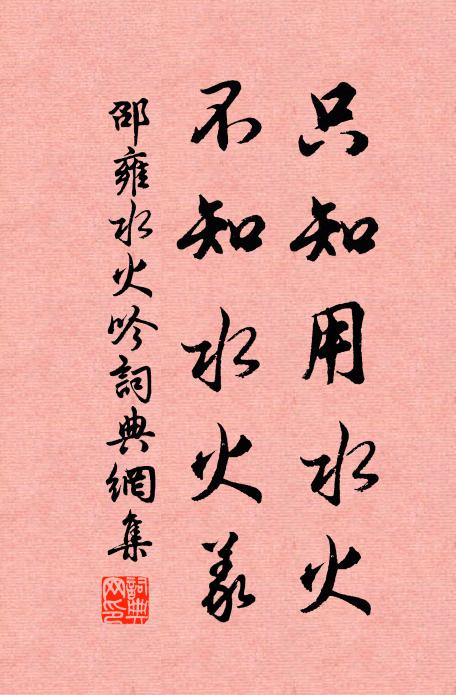 只知用水火
不知水火義
邵雍水火吟詞典網集
詞典網印